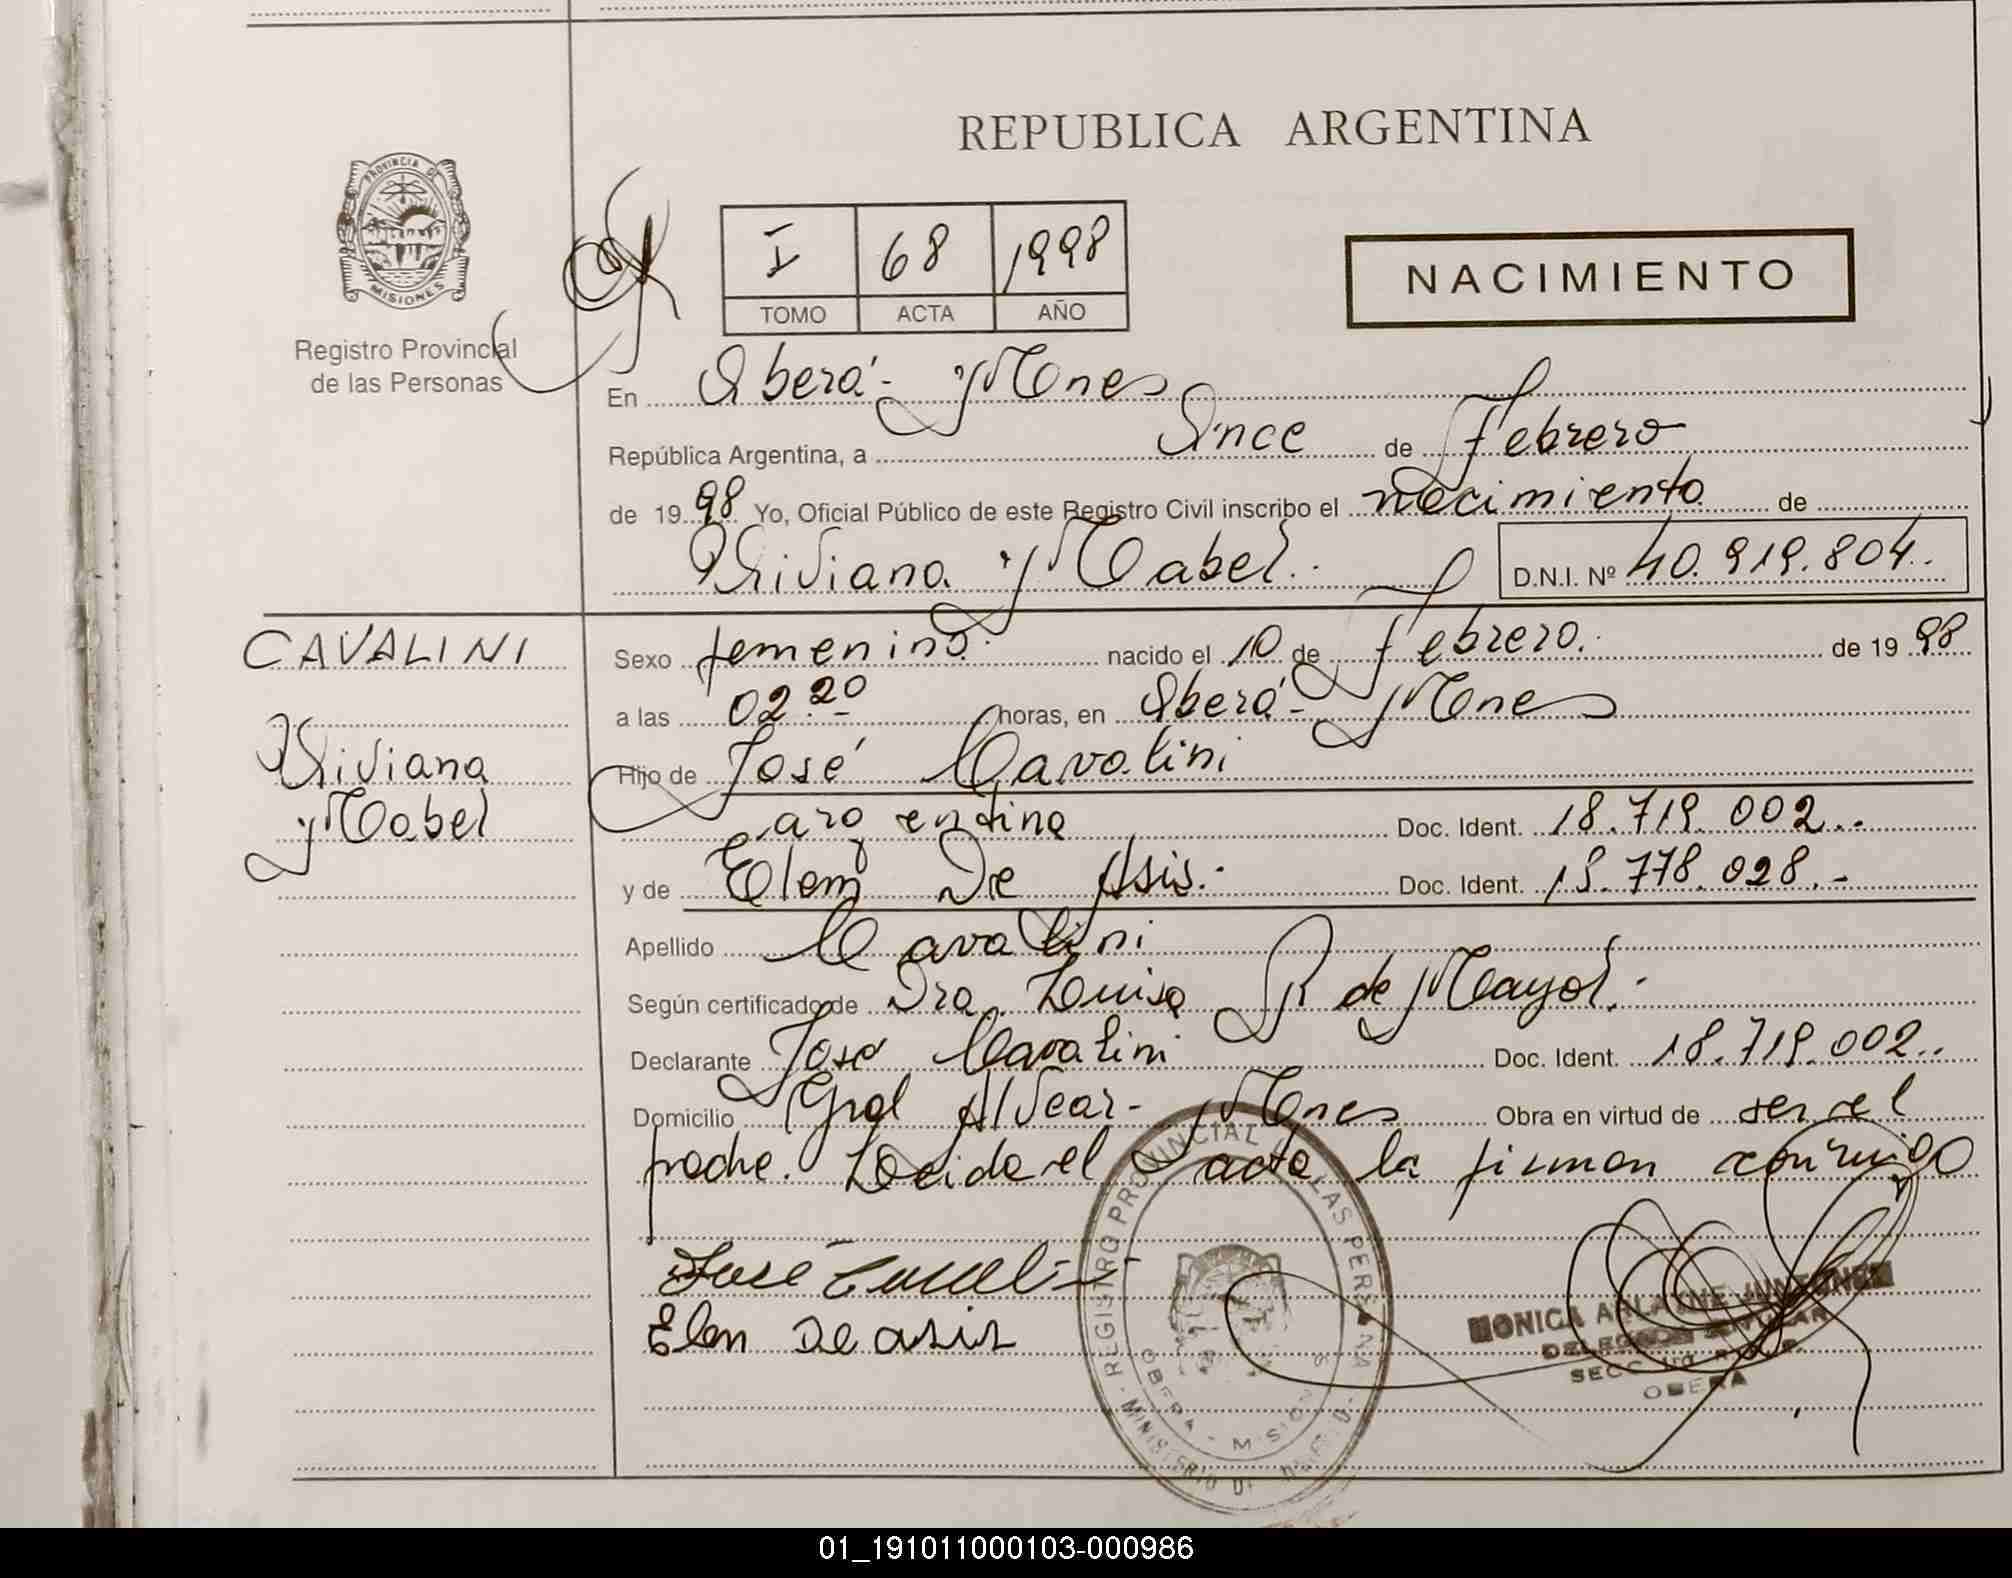 REPUBLICA ARGENTINA
PROVINCIA DE
MISIONES
Registro Provincial
de las Personas
I 68 1998
TOMO ACTA AÑO
NACIMIENTO
En Oberá - Mnes
República Argentina, a Once de Febrero
de 1998 Yo, Oficial Público de este Registro Civil inscribo el nacimiento de
Viviana Mabel. D.N.I. Nº 40.919.804.
CAVALINI
Viviana
Mabel
Sexo femenino. nacido el 10 de Febrero. de 1998
a las 02.20 horas, en Oberá - Mnes
Hijo de José Cavalini
argentina Doc. Ident. 18.719.002..
y de Elena De Asis.- Doc. Ident. 18.778.028.-
Apellido Cavalini
Según certificado de Dra. Luisa R de Mayol.-
Declarante José Cavalini Doc. Ident. 18.719.002..
Domicilio Gral Alvear - Mnes Obra en virtud de ser el
padre. Leida el acta la firman conmigo
José
Elen De asis
REGISTRO PROVINCIAL DE LAS PERSONAS
OBERA - MISIONES
MINISTERIO DE
MONICA
SECC
OBERA
01_191011000103-000986